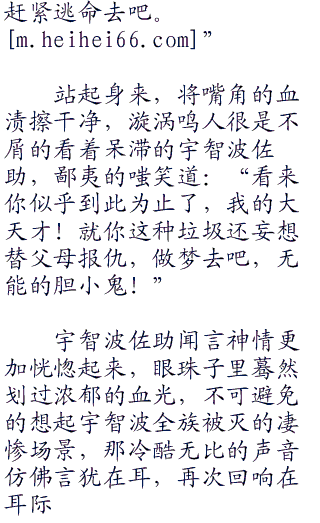 赶紧逃命去吧。
[m.heihei66.com]”
站起身来，将嘴角的血
渍擦干净，漩涡鸣人很是不
屑的看着呆滞的宇智波佐
助，鄙夷的嗤笑道：“看来
你似乎到此为止了，我的大
天才！就你这种垃圾还妄想
替父母报仇，做梦去吧，无
能的胆小鬼！”
宇智波佐助闻言神情更
加恍惚起来，眼珠子里蓦然
划过浓郁的血光，不可避免
的想起宇智波全族被灭的凄
惨场景，那冷酷无比的声音
仿佛言犹在耳，再次回响在
耳际